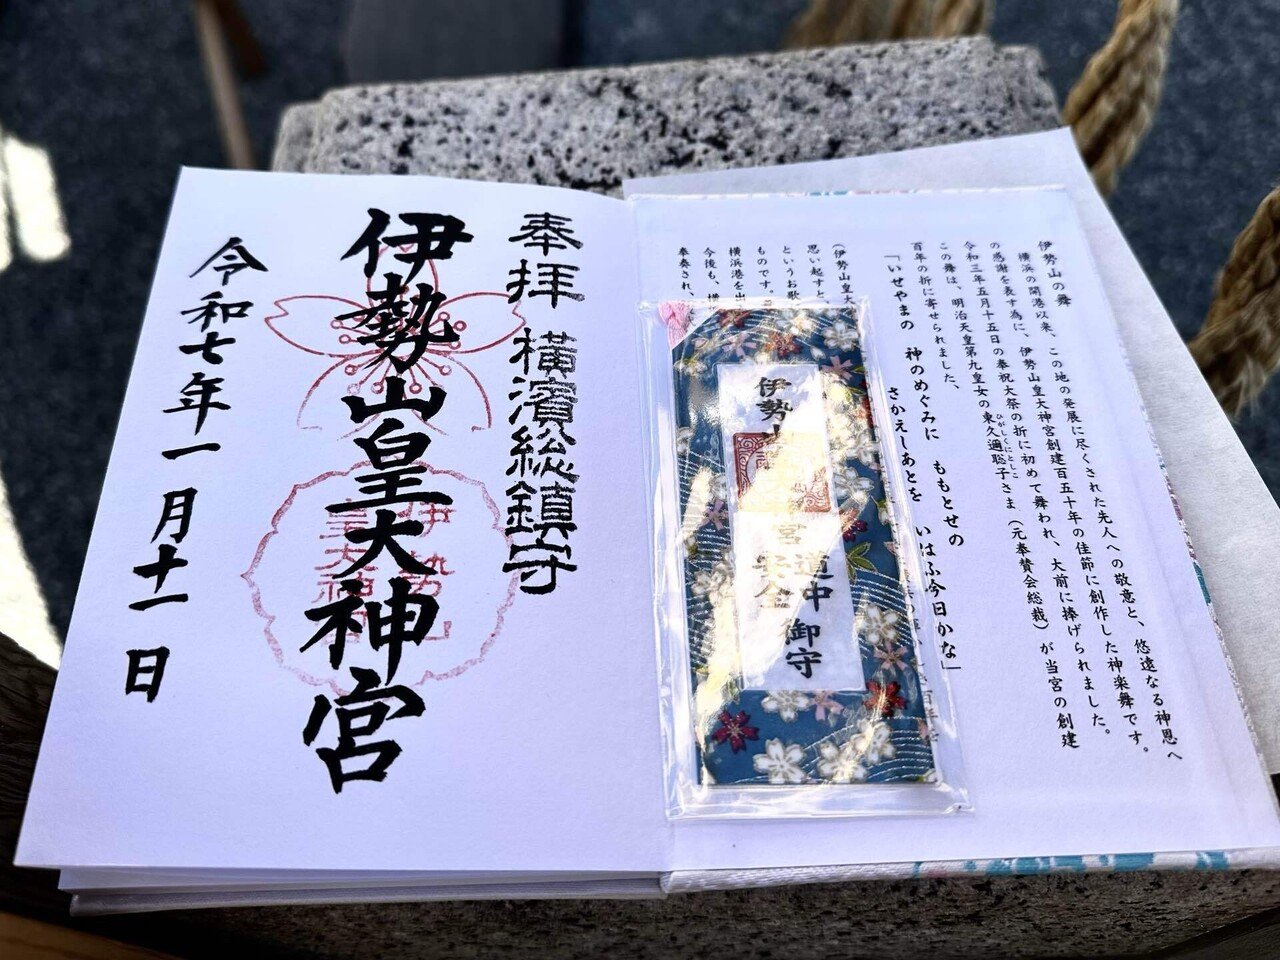 奉拝 横濱総鎮守
伊勢山皇大神宮
令和七年一月十一日
伊勢山の舞
横浜の開港以来、この地の発展に尽くされた先人への敬意と、悠遠なる神恩へ
の感謝を表す為に、伊勢山皇大神宮創建百五十年の佳節に創作した神楽舞です。
令和三年五月十五日の奉祝大祭の折に初めて舞われ、大前に捧げられました。
この舞は、明治天皇第九皇女の東久邇聡子さま（元奉賛会総裁）が当宮の創建
ひがしくにとしこ
百年の折に寄せられました、
「いせやまの 神のめぐみに ももとせの
さかえしあとを いはふ今日かな」
というお歌
ものです。
横浜港を出
今後も、横
奉奏され、
（伊勢山皇大
思い起すと
伊勢山
宮
道中安全御守